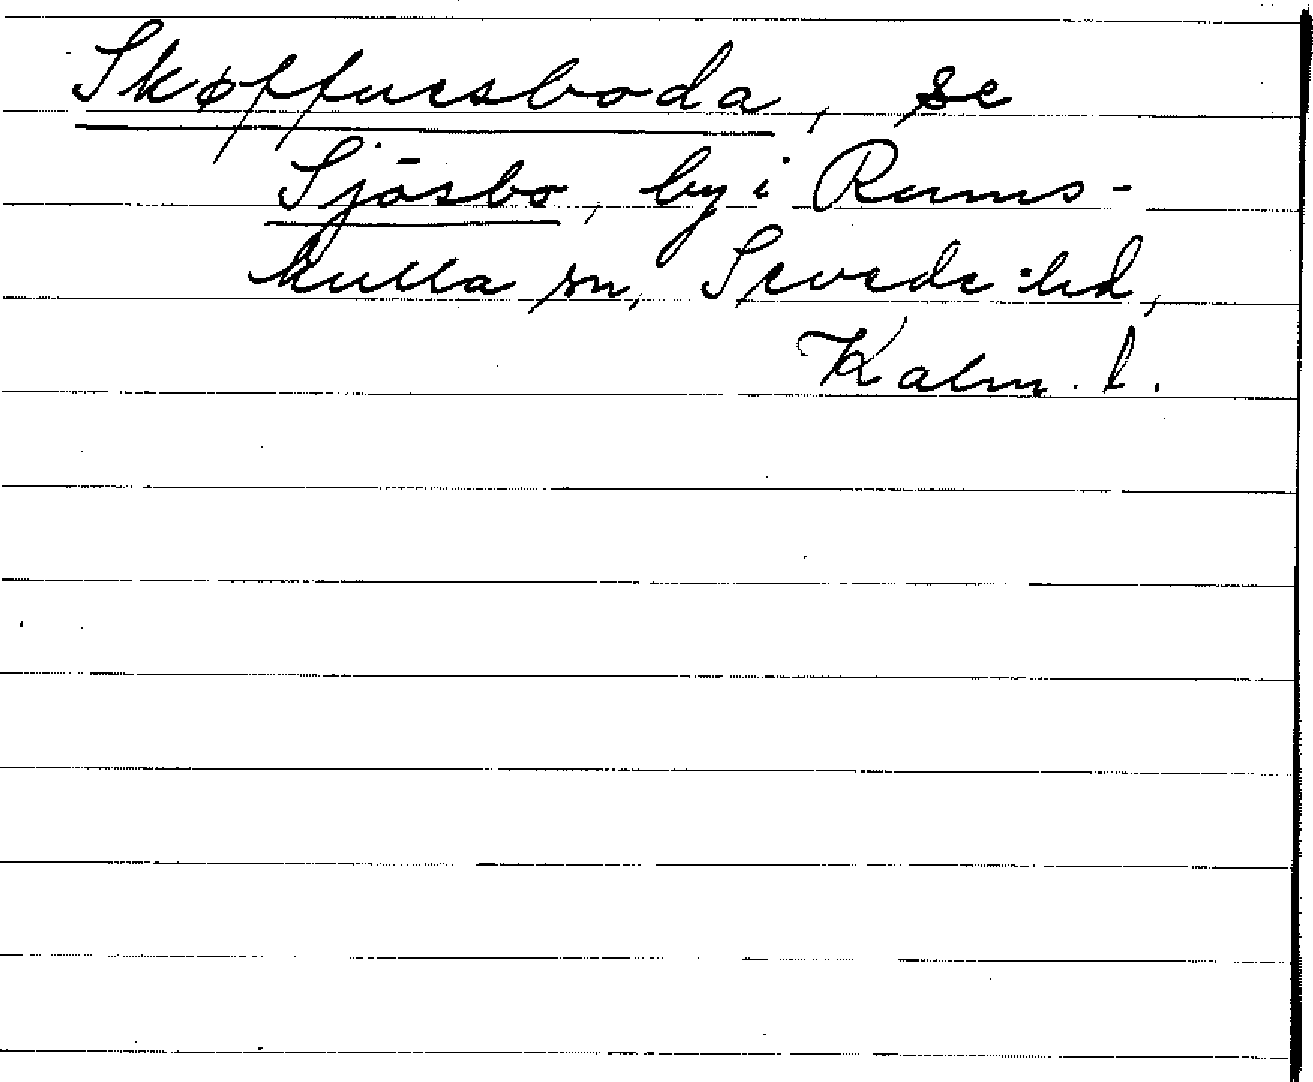 Skøffuesboda, se
Sjösbo, by i Rums-
kulla sn, Sevede hd,
Kalm. l.